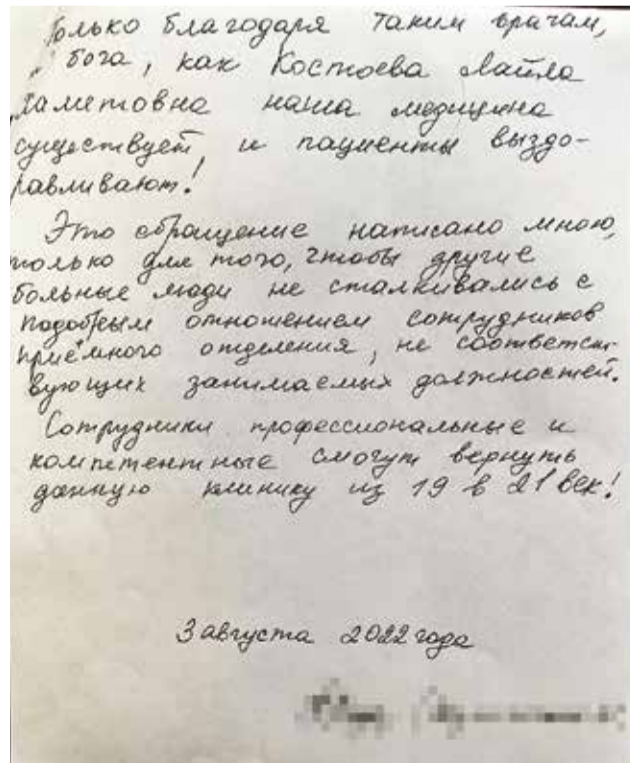 Только благодаря таким врачам,
бога, как Костоева Лайла
наша медицина
существует и пациенты выздо-
равливают!
Это обращение написано мною,
только для того, чтобы другие
больные люди не сталкивались с
подобным отношением сотрудников
приёмного отделения, не соответст-
вующих занимаемых должностей.
Сотрудники профессиональные и
компетентные смогут вернуть
данную клинику из 19 в 21 век!
3 августа 2022 года